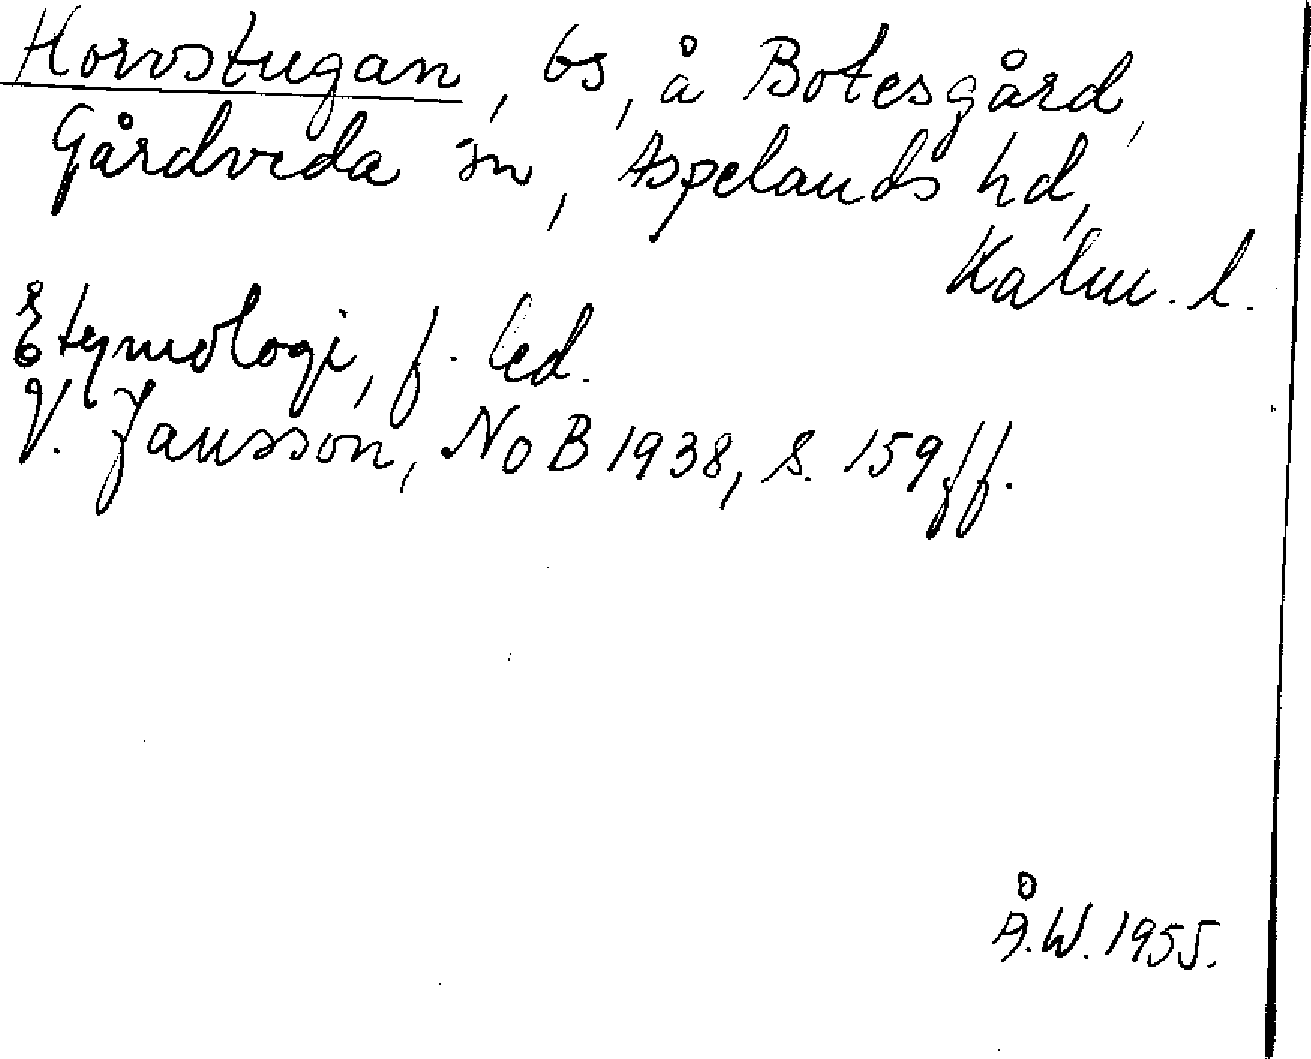 Horvstugan, bs, å Botesgård,
Gårdveda sn, Aspelands hd,
Kalm. l.
Etymologi, f. led.
V. Jansson, NoB 1938, s. 159 ff.
Å.W. 1955.